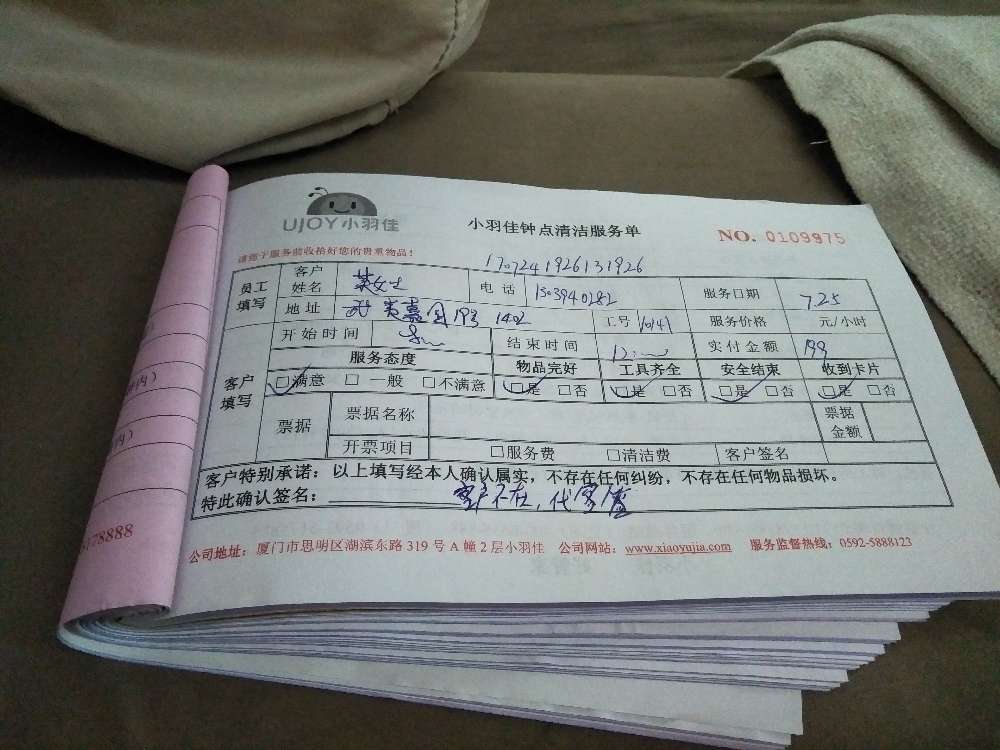 UJOY小羽佳
小羽佳钟点清洁服务单
NO. 0109975
请您于服务前收捡好您的贵重物品!
1707241926131926
员工填写 客户姓名 女士 电话 服务日期 7.25
地址 1402 工号 服务价格 元/小时
客户填写 开始时间 结束时间 12: 实付金额 199
服务态度 物品完好 工具齐全 安全结束 收到卡片
□满意 □一般 □不满意 □是 □否 □是 □否 □是 □否 □是 □否
票据 票据名称 票据金额
开票项目 □服务费 □清洁费 客户签名
客户特别承诺:以上填写经本人确认属实,不存在任何纠纷,不存在任何物品损坏。
特此确认签名: 客户不在,代客户签
公司地址:厦门市思明区湖滨东路 319 号 A 幢 2 层小羽佳 公司网站:www.xiaoyujia.com 服务监督热线:0592-5888123
内)
78888